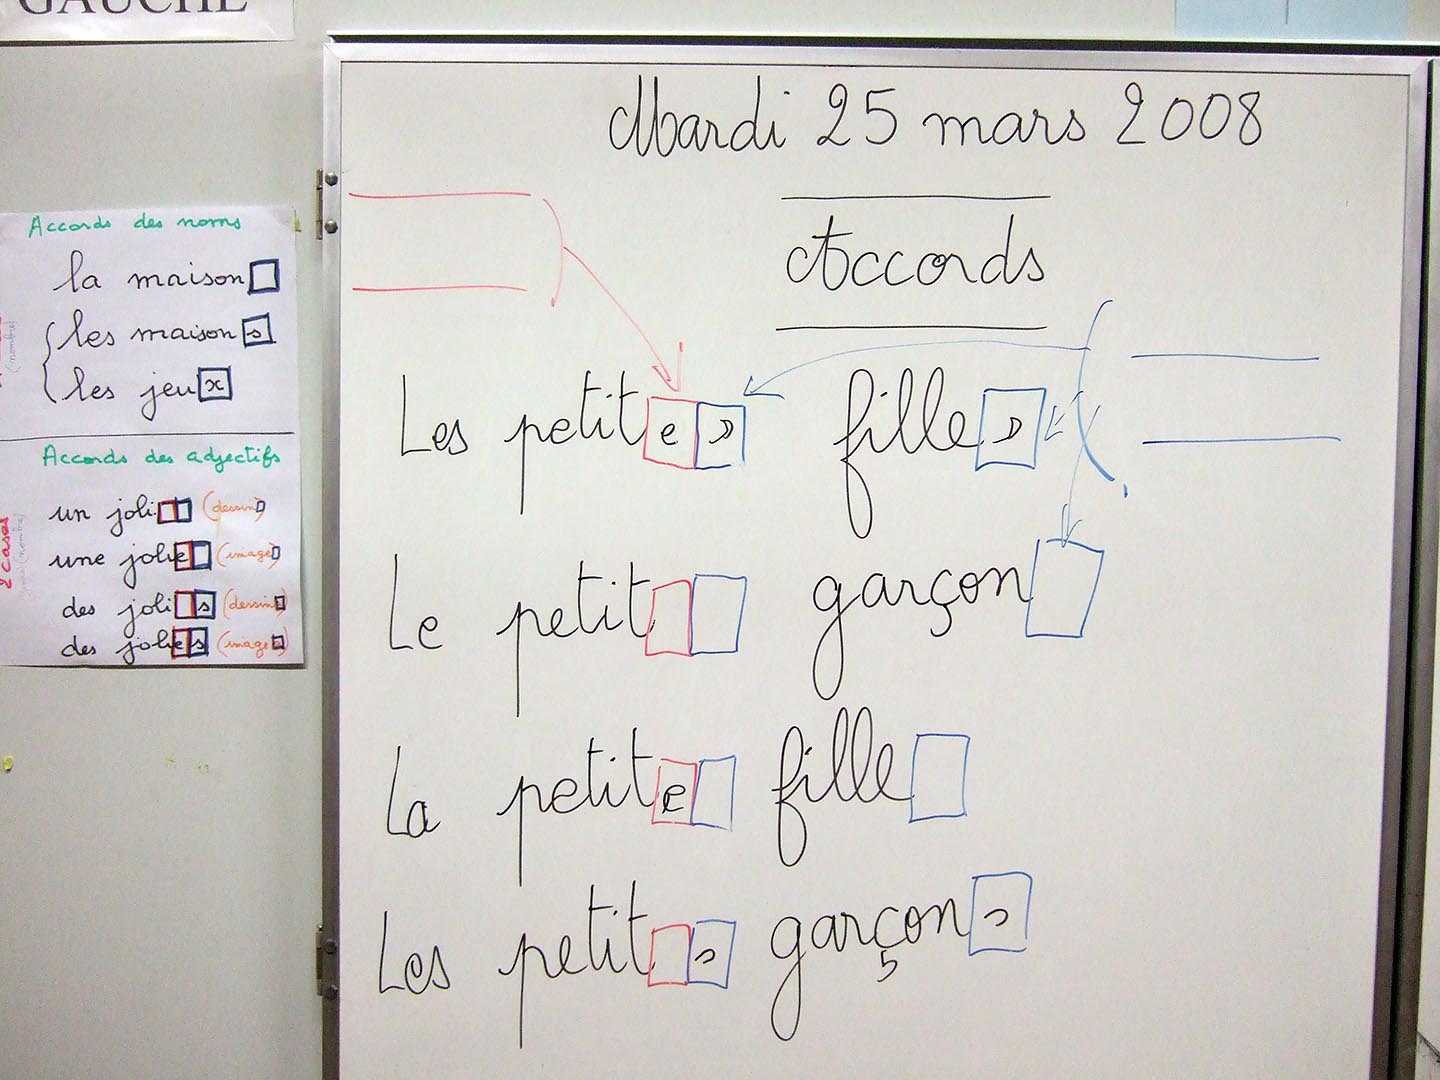 GAUCHE
Accords des noms
la maison
les maisons
les jeux
(nombre)
Accords des adjectifs
un joli (dessin)
une jolie (image)
des jolis (dessins)
des jolies (images)
2 cases
Mardi 25 mars 2008
Accords
Les petites filles
Le petit garçon
La petite fille
Les petits garçons